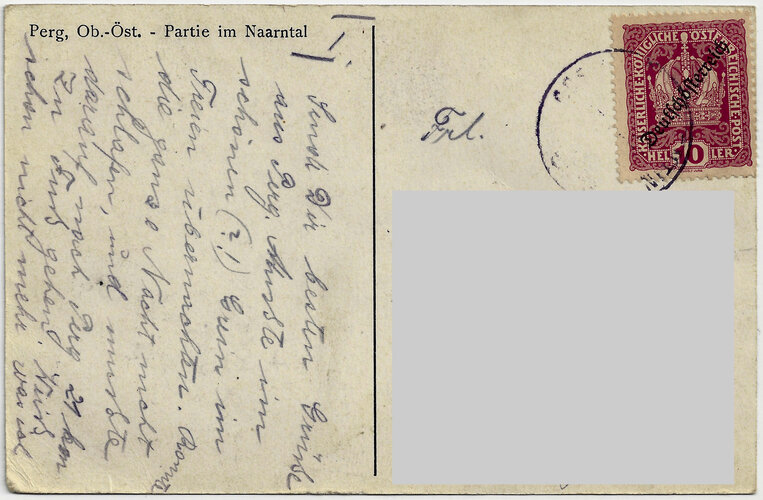 Perg, Ob.-Öst. - Partie im Naarntal
KAISERLICHE KÖNIGLICHE ÖSTERREICHISCHE POST
Deutschösterreich
HEL 10 LER
Frl.
I
Send Dir besten Grüße
aus Perg. Mußte im
schönen (?!) Grein im
Freien übernachten. Konnte
die ganze Nacht nicht
schlafen, und mußte
darauf nach Perg 21 km
zu Fuß gehen. Weiß
schon nicht mehr was